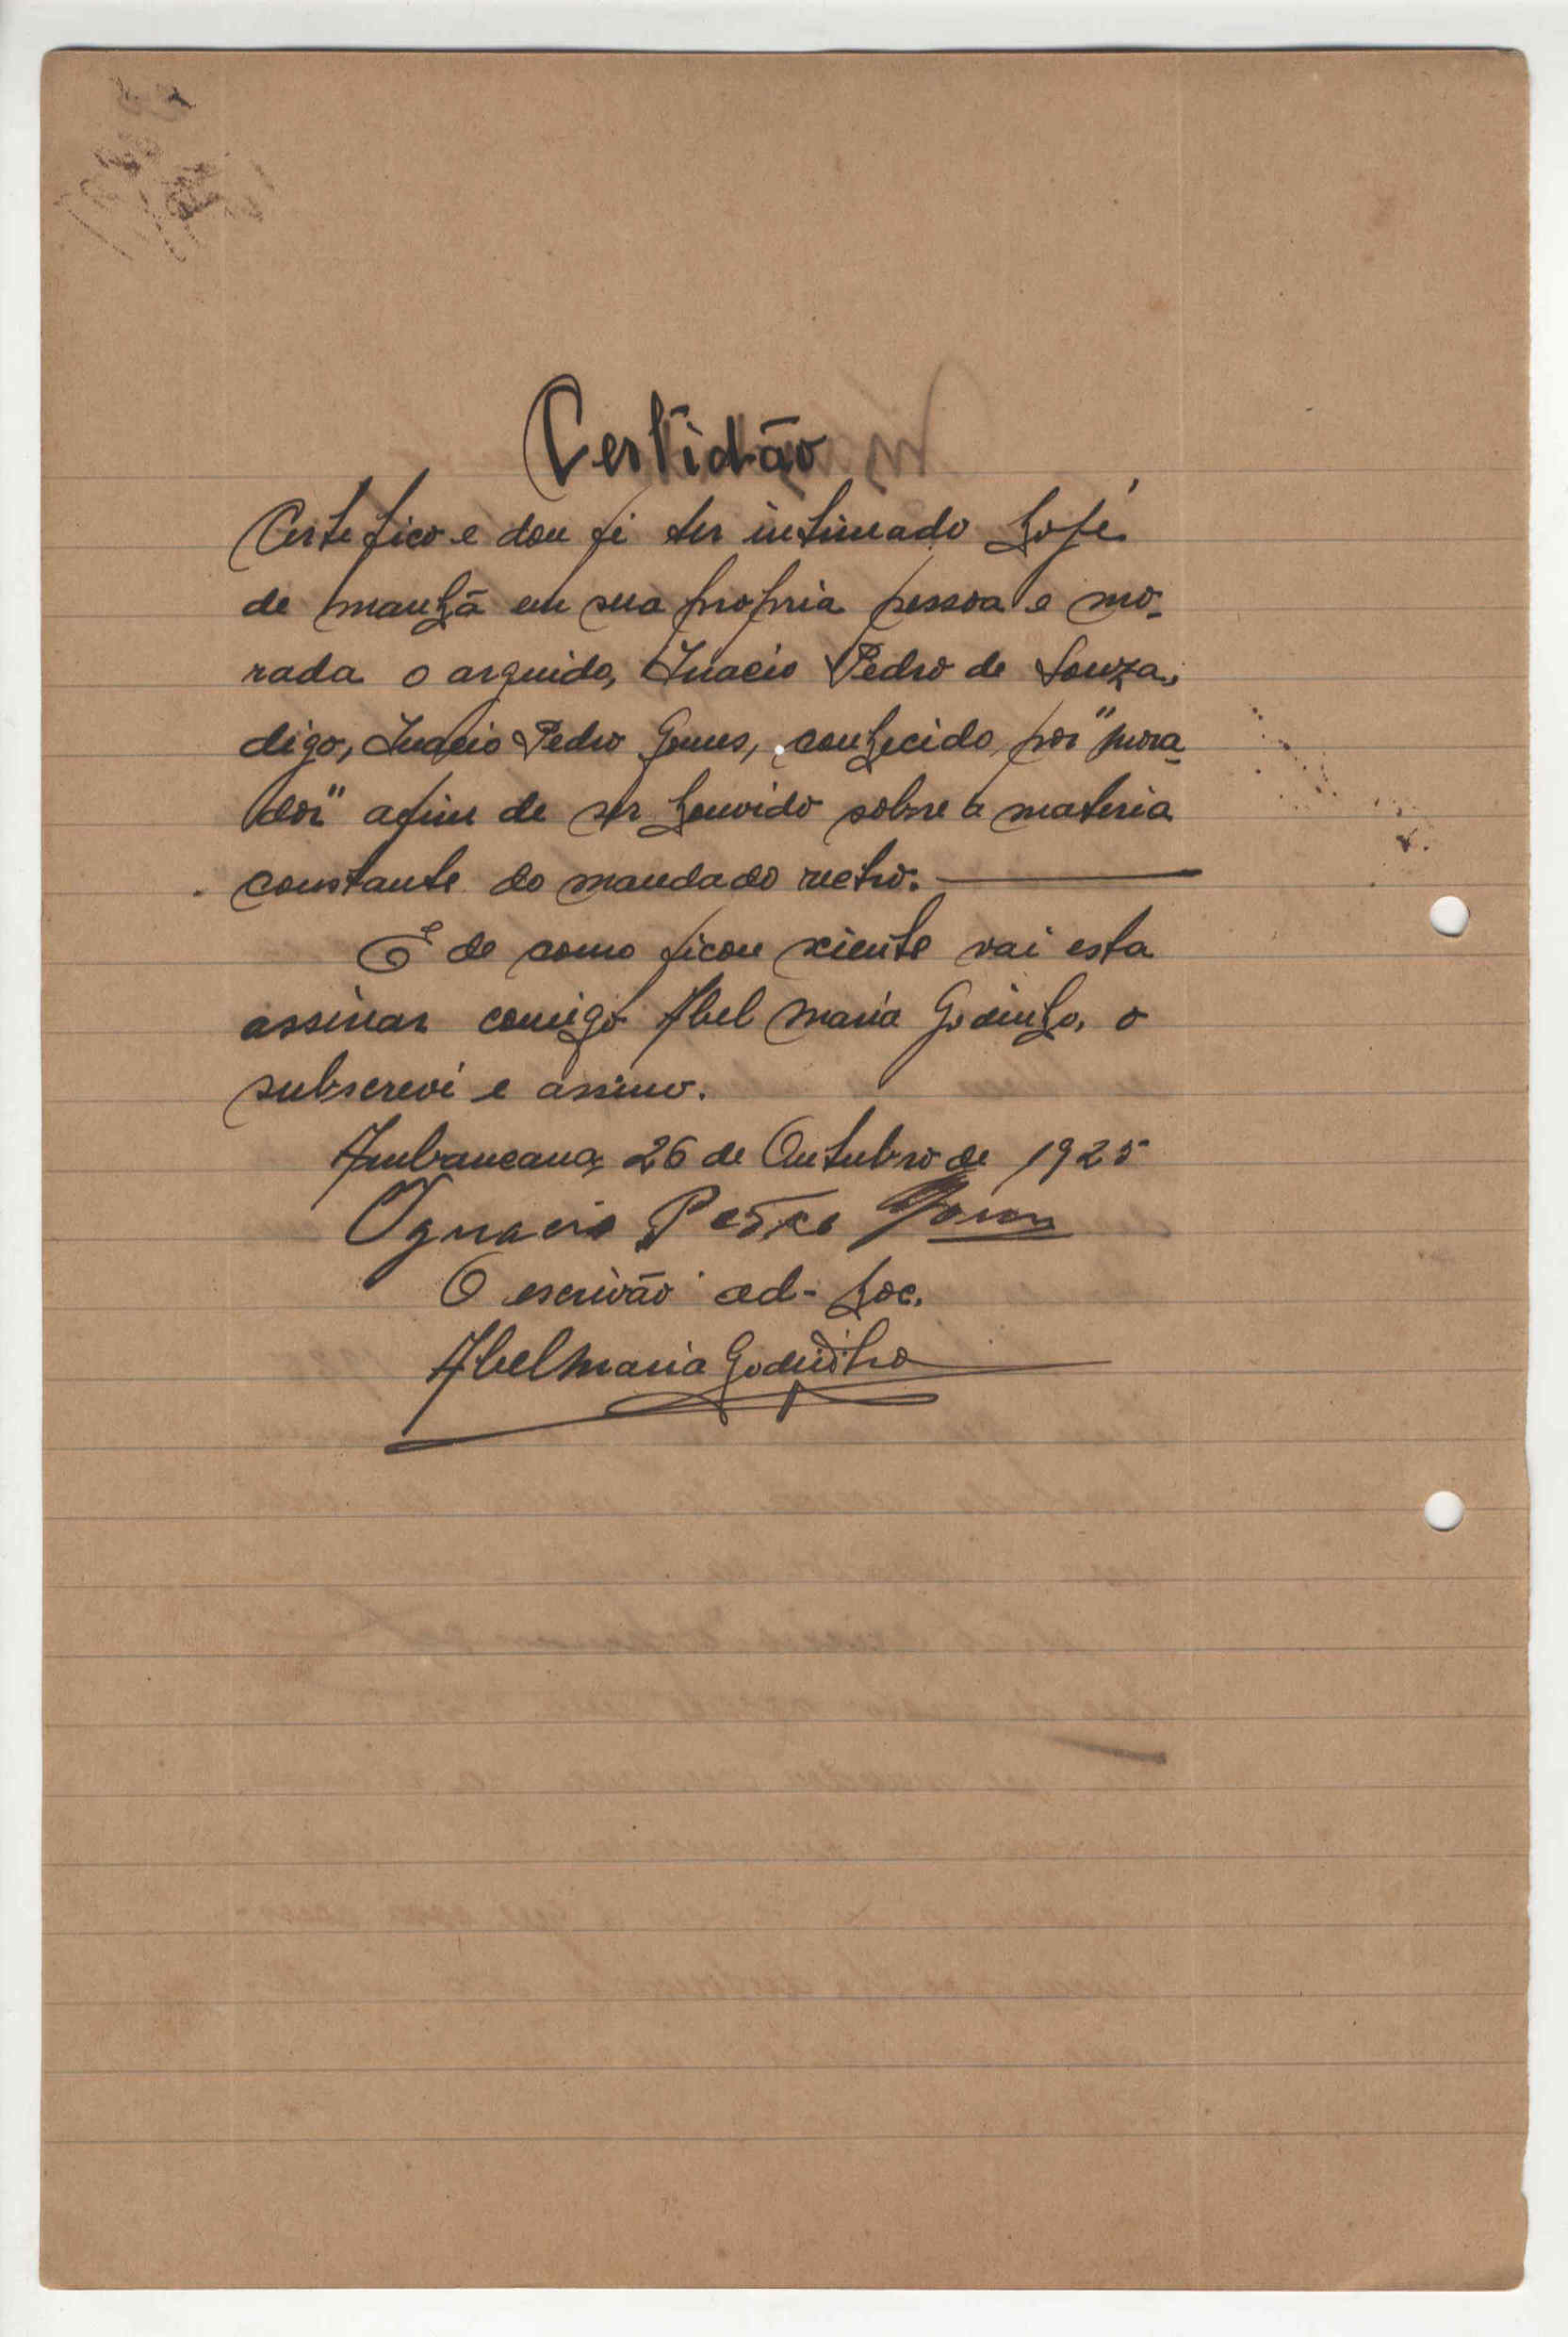 Certidão
Certefico e dou fé ter intimado hoje
de manhã em sua propria pessoa e mo-
rada o arguido, Inacio Pedro de Souza,
digo, Inacio Pedro Gomes, conhecido por "mora-
dor" afim de ser houvido sobre a materia
constante do mandado retro.
E de como ficou sciente vai esta
assinar comigo Abel Maria Godinho, o
subscrevi e assino.
26 de Outubro de 1925
Ignacio Pedro Gomes
O escrivão ad-hoc.
Abel Maria Godinho